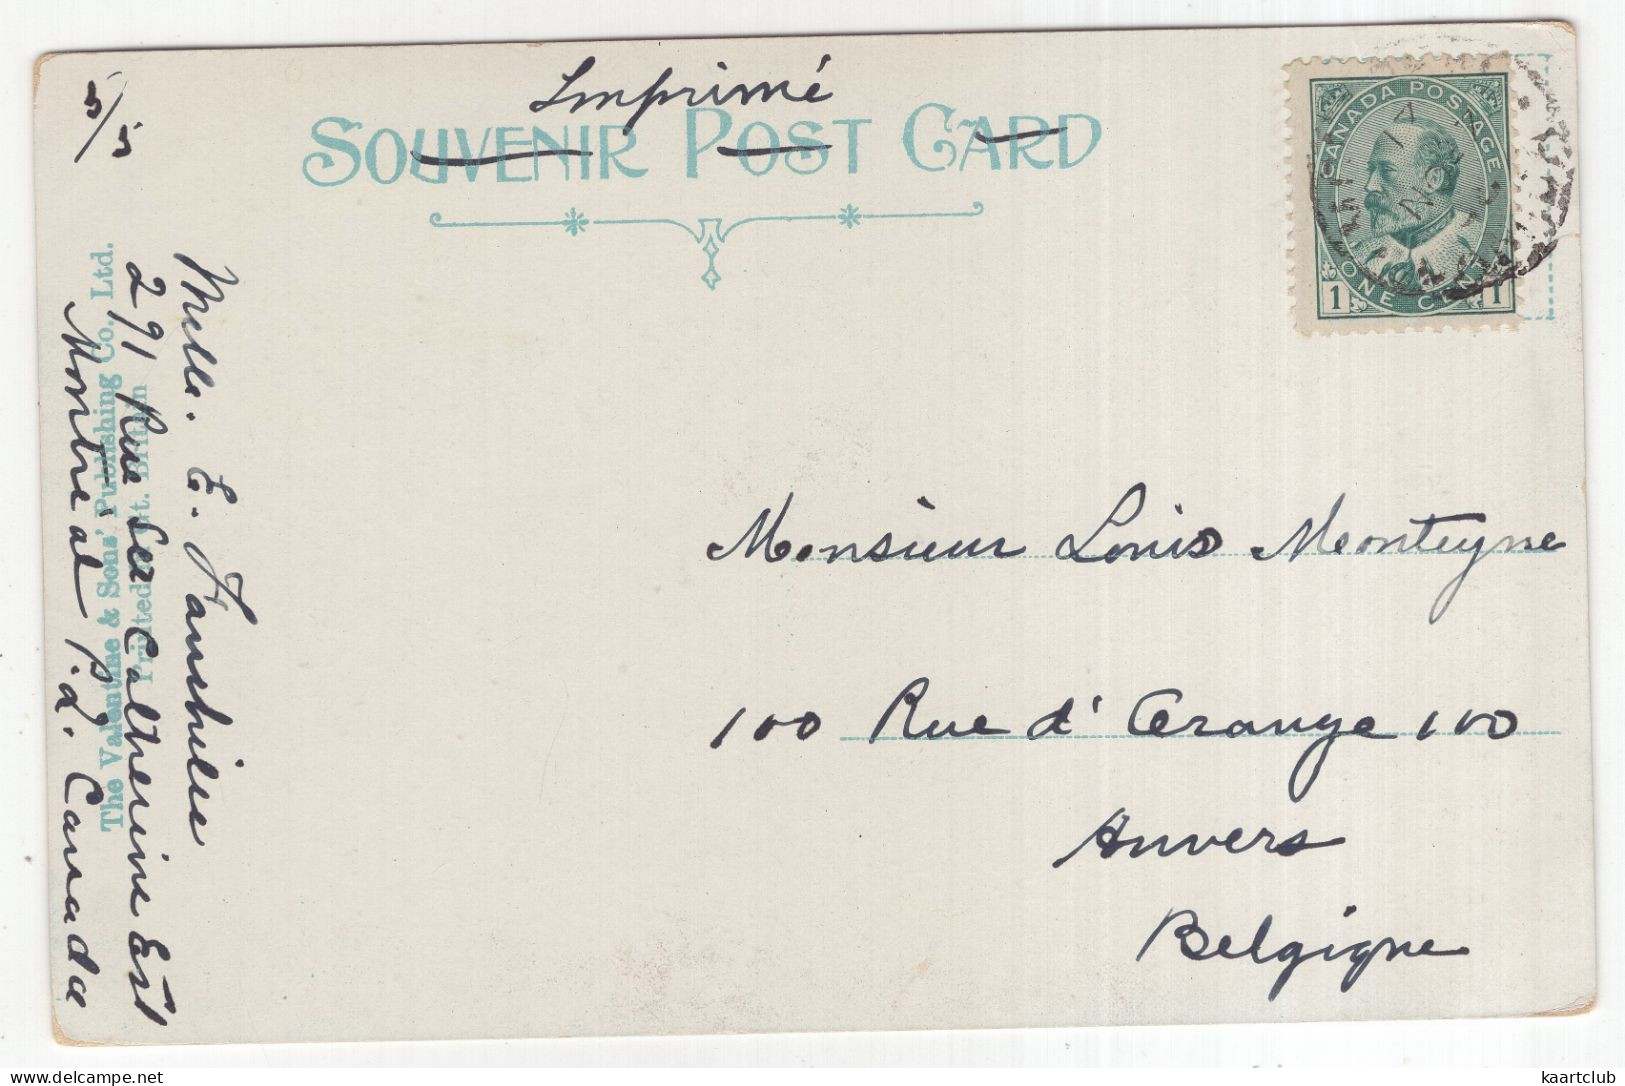 Imprimé
SOUVENIR POST CARD
5/5
CANADA POSTAGE
14
NO
1 ONE CENT 1
Monsieur Louis Monteyne
100 Rue d'Orange 100
Anvers
Belgique
Melle. E.
291 Rue Ste Catherine Est
Montréal P.Q. Canada
The Valentine & Sons' Publishing Co., Ltd.
Printed in Gt. Britain
kaartclub